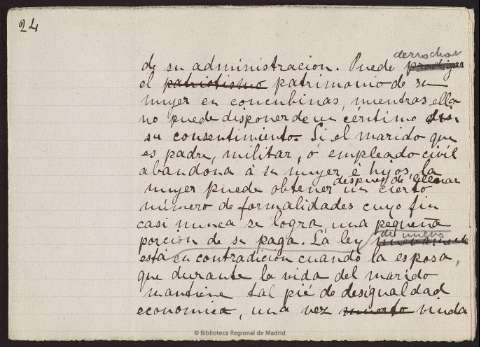 24
derrochar
de su administracion. Puede prodigar
el patriotismo patrimonio de su
mujer en concubinas, mientras ella
no puede disponer de un centimo sin
su consentimiento. Si el marido que
es padre, militar, ó empleado civil
abandona á su mujer é hijos, la
despues de llenar
mujer puede obtener un cierto
número de formalidades cuyo fin
casi nunca se logra, una pequeña
de nuevo
porcion de su paga. La ley
está en contradicion cuando la esposa,
que durante la vida del marido
mantiene tal pié de desigualdad
economica, una vez muerto viuda
© Biblioteca Regional de Madrid